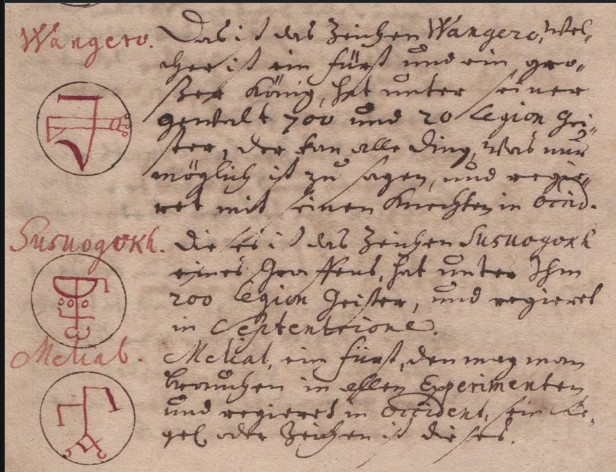 Wangero.
Das ist das Zeichen Wangero, wel-
cher ist ein fürst und ein gro-
ßer König, hat unter seiner
gewalt 700 und 20 Legion Gei-
ster, der kan alle Ding, was nur
möglich ist zu sagen, und regie-
ret mit seinen Knechten in Occid.
Susnogokh.
Dieses ist das Zeichen Susnogokh
eines Graffens, hat unter Ihm
200 Legion Geister, und regieret
in Septentrione.
Melial.
Melial, ein fürst, den mag man
brauchen in allen Experimenten
und regieret in Occident, sein Sie-
gel oder Zeichen ist dieses.